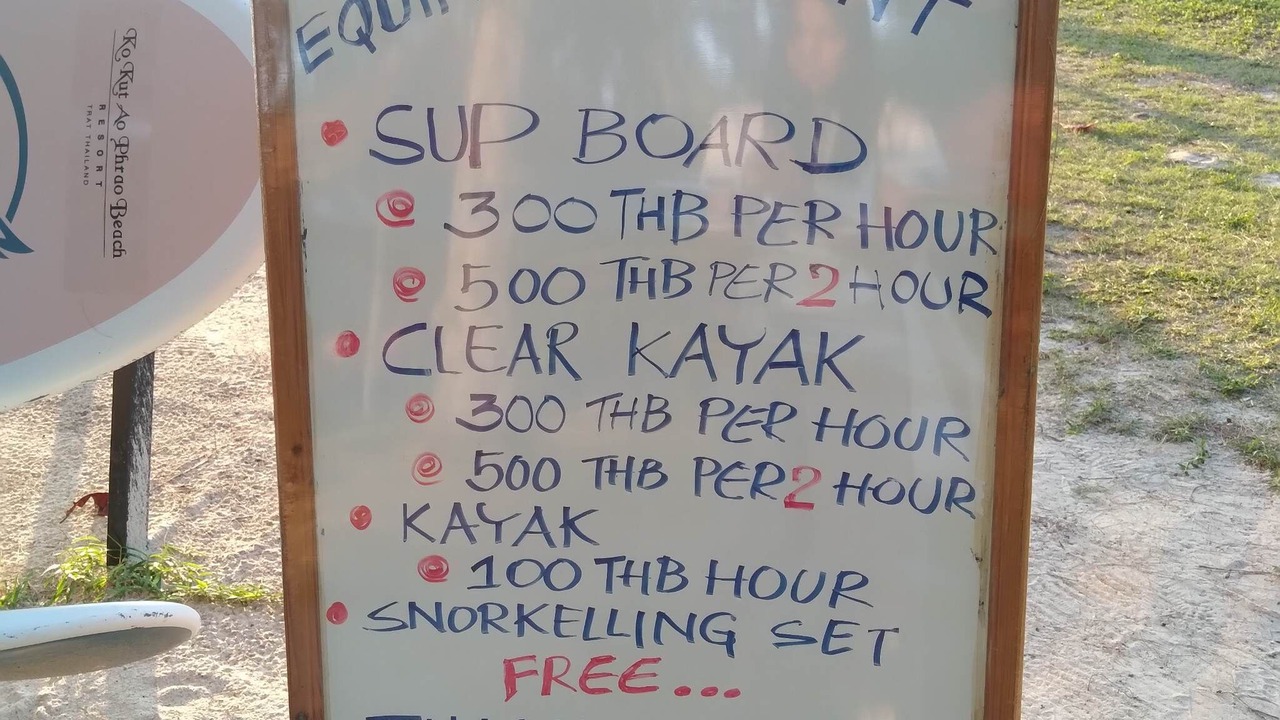 Ko Kut Ao Phrao Beach
RESORT
TRAT THAILAND
SUP BOARD
300 THB PER HOUR
500 THB PER 2 HOUR
CLEAR KAYAK
300 THB PER HOUR
500 THB PER 2 HOUR
KAYAK
100 THB HOUR
SNORKELLING SET
FREE...